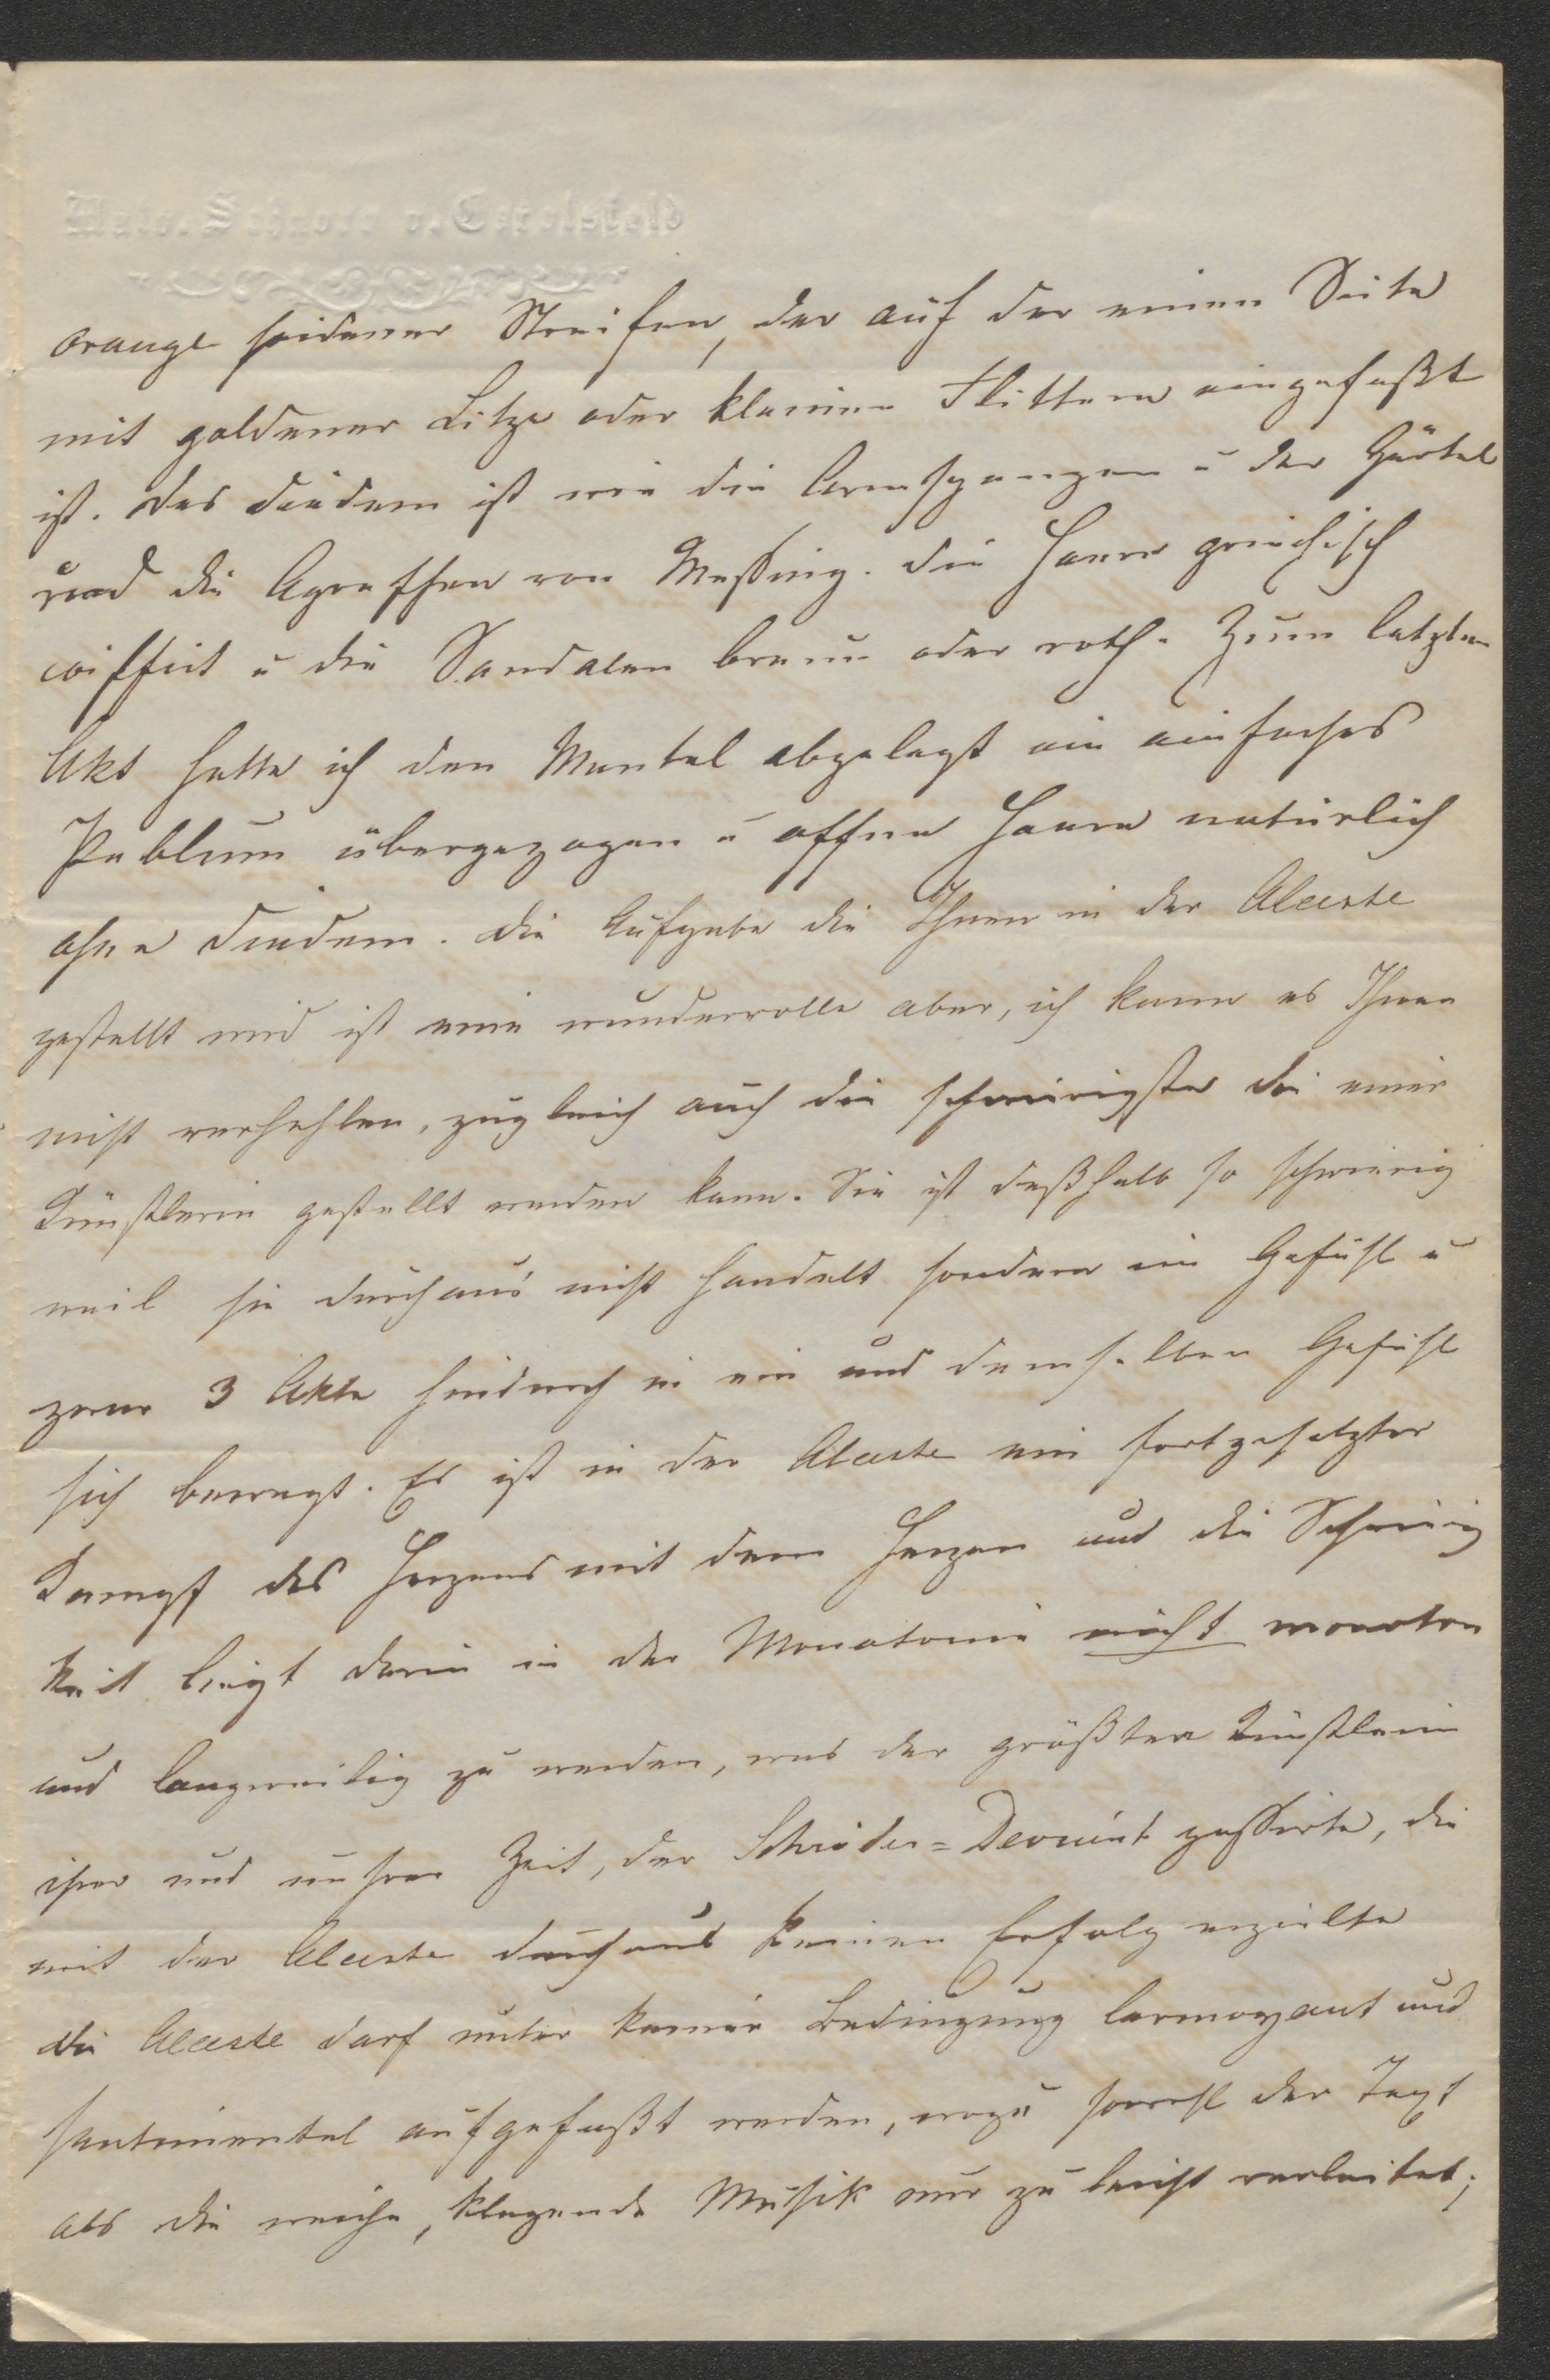 Malv. Schnorr v. Carolsfeld
orange seidener Streifen, der auf der einen Seite
mit goldener Litze oder kleinen Flittern eingefaßt
ist. Das Diadem ist wie die Armspangen u der Gürtel
und die Agraffen von Messing. Die Haare griechisch
coiffirt u die Sandalen braun oder roth. Zum letzten
Akt hatte ich den Mantel abgelegt ein einfaches
Peblum übergezogen u offne Haare natürlich
ohne Diadem. Die Aufgabe die Ihnen in der Alceste
gestellt wird ist eine wundervolle aber, ich kann es Ihnen
nicht verhehlen, zugleich auch die schwierigste die einer
Künstlerin gestellt werden kann. Sie ist deßhalb so schwierig
weil sie durchaus nicht handelt sondern ein Gefühl u
zwar 3 Akte hindurch in ein und demselben Gefühl
sich bewegt. Es ist in der Alceste ein fortgesetzter
Kampf des Herzens mit dem Herzen und die Schwierig
keit liegt darin in der Monotonie nicht monoton
und langweilig zu werden, was der größten Künstlerin
ihrer und unsrer Zeit, der Schröder=Devrient passirte, die
mit der Alceste durchaus keinen Erfolg erzielte
die Alceste darf unter keiner Bedingung larmoyant und
sentimental aufgefaßt werden, wozu sowohl der Text
als die weiche, klagende Musik nur zu leicht verleitet;